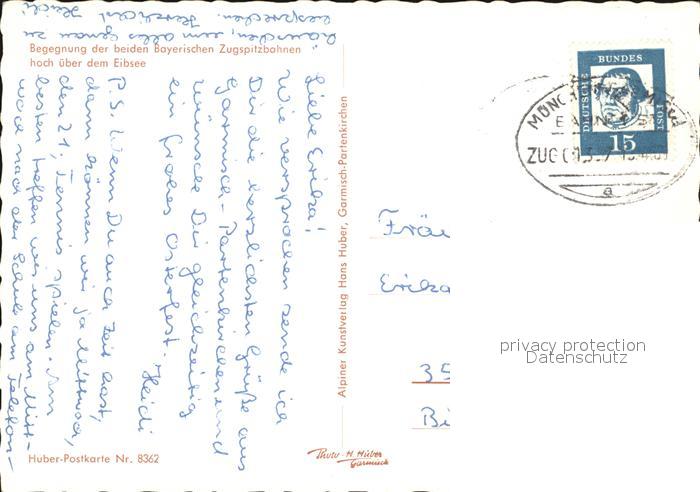 Begegnung der beiden Bayerischen Zugspitzbahnen
hoch über dem Eibsee
Liebe Erika!
Wie versprochen sende ich
Dir die herzlichsten Grüße aus
Garmisch-Partenkirchen und
wünsche Dir gleichzeitig
ein frohes Osterfest.
Heidi
P.S. Wenn Du auch Zeit hast,
dann können wir ja Mittwoch,
den 21, Tennis spielen. Am
besten treffen wir uns am Mitt-
woch nach der Schule am Telefon-
häuschen, um alles genau zu
besprechen. Herzlichst Heidi
Huber-Postkarte Nr. 8362
Alpiner Kunstverlag Hans Huber, Garmisch-Partenkirchen
Photo-H. Huber
Garmisch
DEUTSCHE
BUNDES
POST
15
ZUG
a
Fräu
Erika
35
Bi
privacy protection
Datenschutz